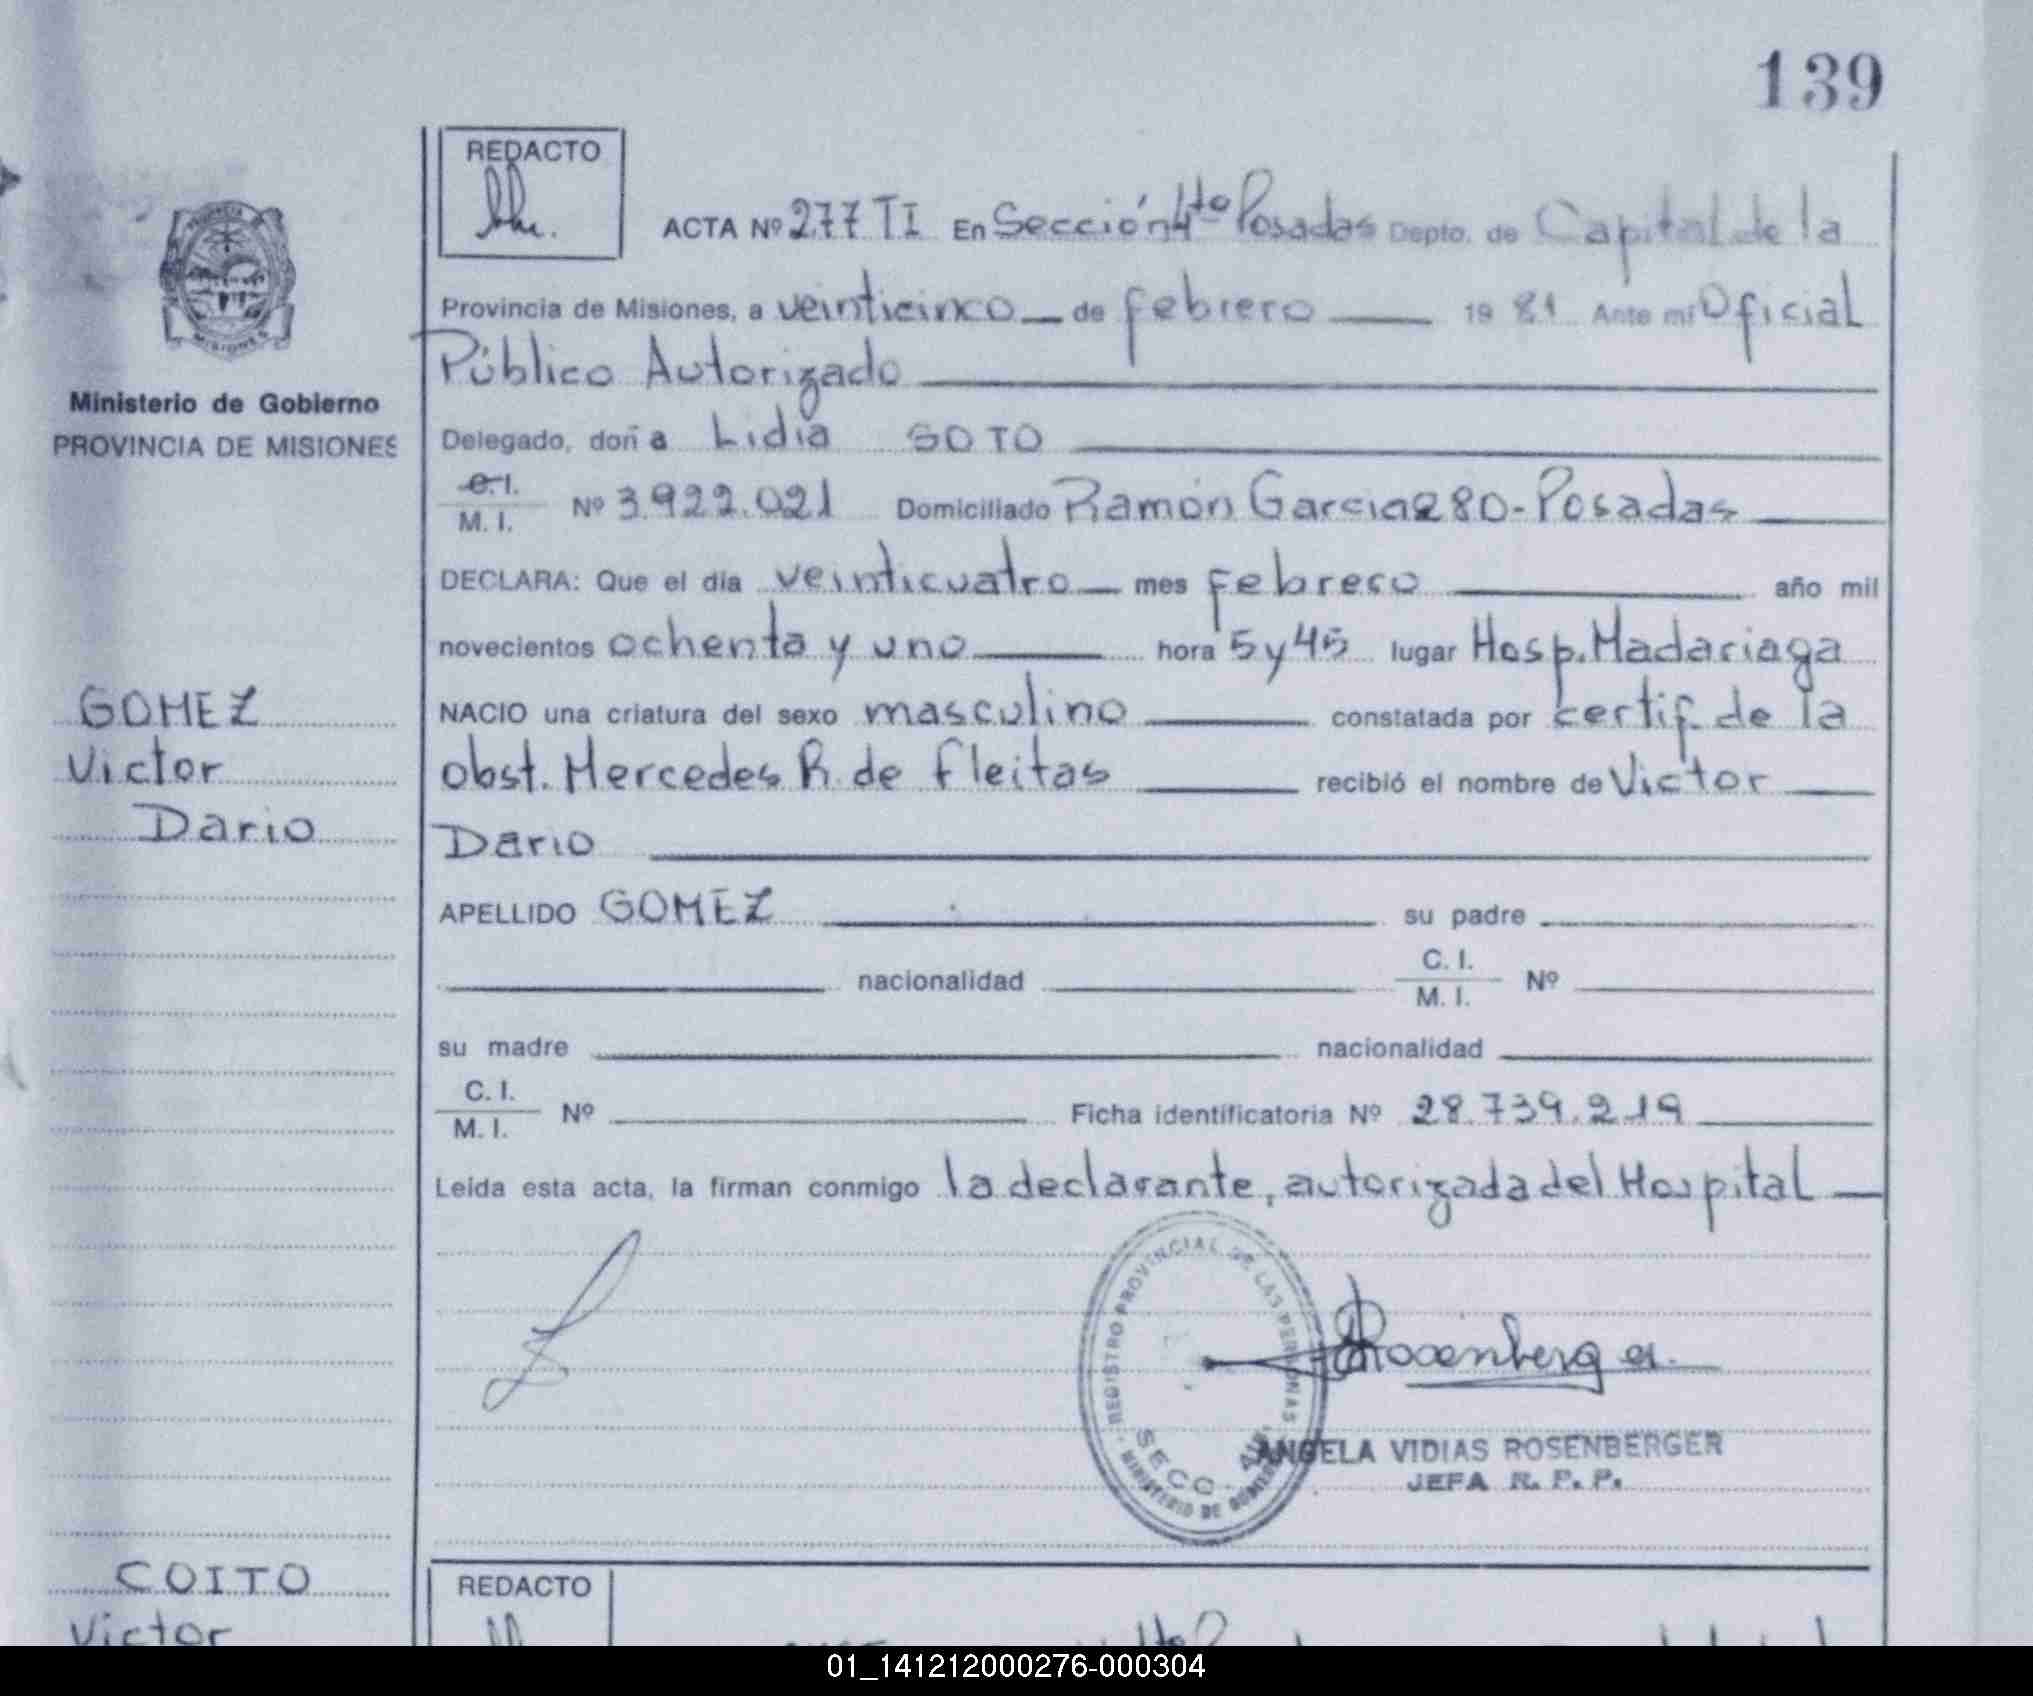 139
REDACTO
ACTA Nº 277 TI En Sección 4to Posadas Depto. de Capital de la
Provincia de Misiones, a veinticinco de febrero 1981 Ante mi Oficial
Público Autorizado
Ministerio de Gobierno
PROVINCIA DE MISIONES
Delegado, doña Lidia SOTO
C.I.
M. I. Nº 3.922.021 Domiciliado Ramón Garcia 280-Posadas
DECLARA: Que el dia veinticuatro mes febrero año mil
novecientos ochenta y uno hora 5 y 45 lugar Hosp. Madariaga
GOMEZ
Victor
Dario
NACIO una criatura del sexo masculino constatada por certif. de la
obst. Mercedes R. de Fleitas recibió el nombre de Victor
Dario
APELLIDO GOMEZ su padre
nacionalidad C. I.
M. I. Nº
su madre nacionalidad
C. I.
M. I. Nº Ficha identificatoria Nº 28.739.219
Leida esta acta, la firman conmigo la declarante, autorizada del Hospital
REGISTRO PROVINCIAL DE LAS PERSONAS
SECC. 4ta.
MINISTERIO DE GOBIERNO
Rosenberger
ANGELA VIDIAS ROSENBERGER
JEFA R. P. P.
COITO
Victor
REDACTO
01_141212000276-000304